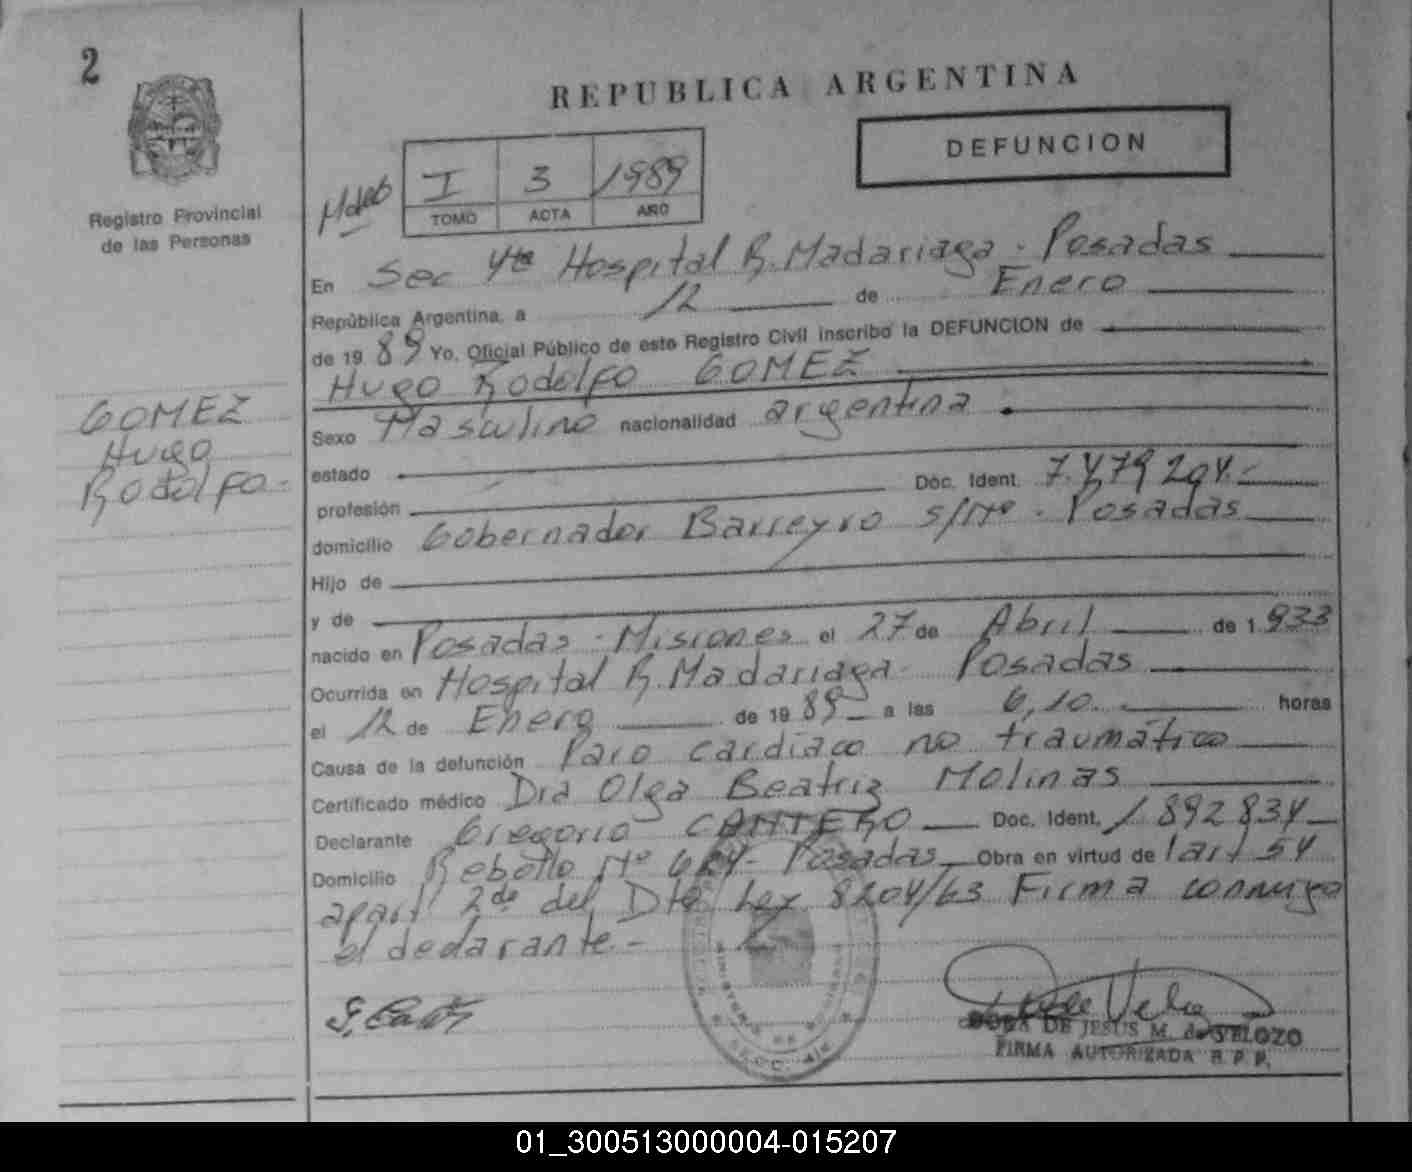 2
REPUBLICA ARGENTINA
DEFUNCION
I 3 1989
TOMO ACTA AÑO
Registro Provincial
de las Personas
En Sec 4ta Hospital R. Madariaga - Posadas
República Argentina, a 12 de Enero
de 1989 Yo, Oficial Público de este Registro Civil inscribo la DEFUNCION de
Hugo Rodolfo GOMEZ
GOMEZ
Hugo
Rodolfo -
Sexo Masculino nacionalidad argentina
estado
profesión Doc. Ident. 7.479.204.-
domicilio Gobernador Barreyro s/Nº - Posadas
Hijo de
y de
nacido en Posadas - Misiones el 27 de Abril de 1.933
Ocurrida en Hospital R. Madariaga - Posadas
el 12 de Enero de 1989 a las 6,10 horas
Causa de la defunción Paro cardiaco no traumático
Certificado médico Dra Olga Beatriz Molinas
Declarante Gregorio CANTERO Doc. Ident. 1.892.834
Domicilio Rebollo Nº Posadas Obra en virtud de l art 54
apart 2do del Dto Ley 8204/63 Firma conmigo
el declarante -
DE JESUS M. de VELOZO
FIRMA AUTORIZADA R. P. P.
01_300513000004-015207